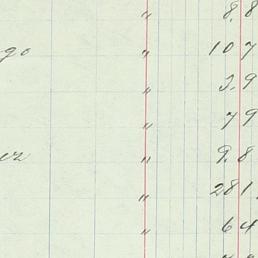 " 8.8
go " 107
" 3.9
" 79
ez " 9.8
" 281
" 64